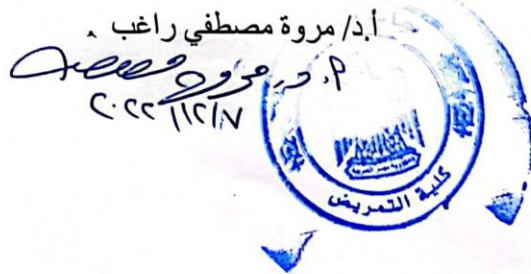 أ.د/ مروة مصطفي راغب
م.د. مروة مصطفى
٢٠٢٢/١٢/٧
كلية التمريض